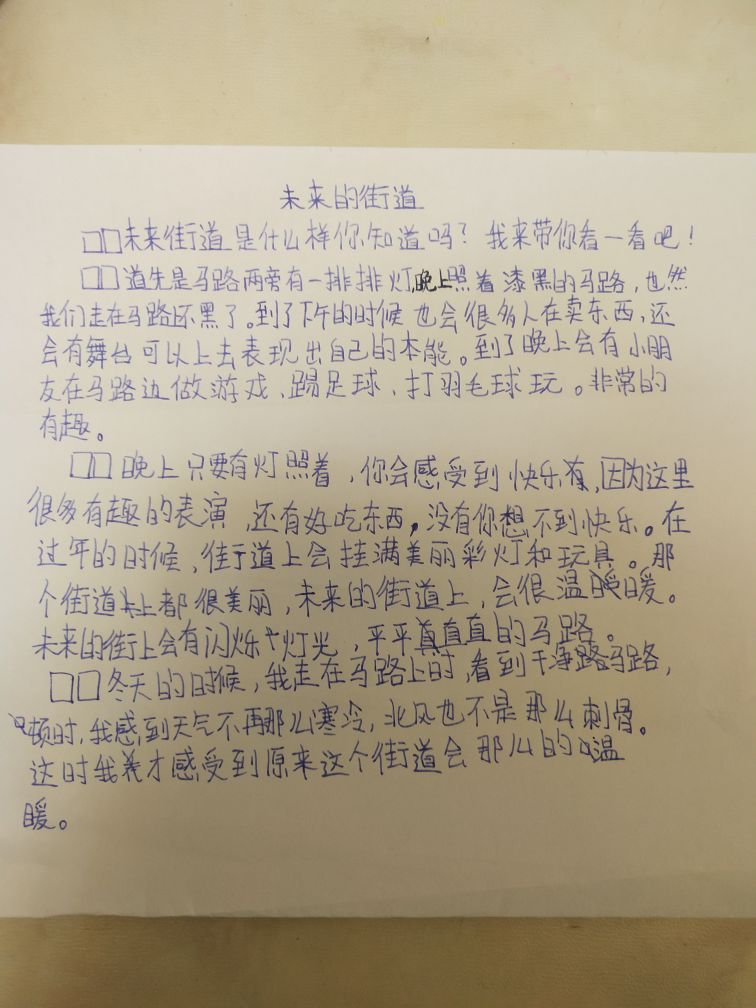 未来的街道
□□未来街道是什么样你知道吗？我来带你看一看吧！
□□道先是马路两旁有一排排灯,晚上照着漆黑的马路，也然
我们走在马路还黑了。到了下午的时候也会很多人在卖东西，还
会有舞台可以上去表现出自己的本能。到了晚上会有小朋
友在马路边做游戏、踢足球、打羽毛球玩。非常的
有趣。
□□晚上只要有灯照着，你会感受到快乐,因为这里
很多有趣的表演，还有好吃东西，没有你想不到快乐。在
过年的时候，街道上会挂满美丽彩灯和玩具。那
个街道上都很美丽，未来的街道上，会很温暖。
未来的街上会有闪烁灯光，平平直直的马路。
□□冬天的时候，我走在马路上时，看到干净马路，
顿时，我感到天气不再那么寒冷，北风也不是那么刺骨。
这时我才感受到原来这个街道会那么的温
暖。